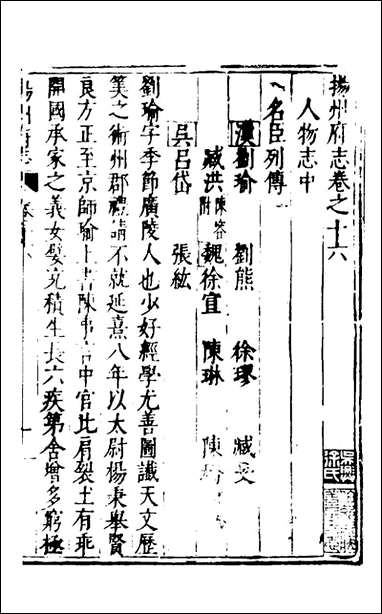 揚州府志卷之十六
人物志中
名臣列傳
漢劉瑜 劉熊 徐璆 臧旻
臧洪陳容附 魏徐宣 陳琳 陳
吳呂岱 張紘
劉瑜字季節廣陵人也少好經學尤善圖讖天文歷
筭之術州郡禮請不就延熹八年以太尉楊秉舉賢
良方正至京師瑜上書陳事言中官比肩裂土有乖
開國承家之義女嬖充積生長六疾第舍增多窮極